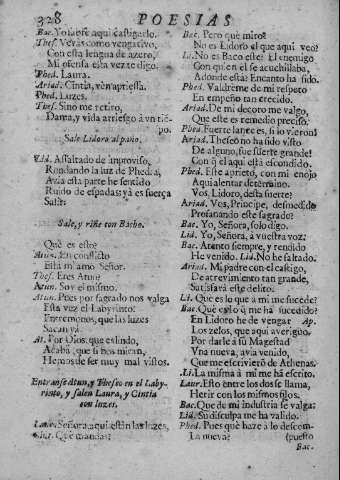 328 POESIAS
Bac. Yo sabrè aqui castigarlo.
Thes. Veràs como vengativo,
Con esta lengua de azero,
Mi ofensa esta vez te digo.
Phed. Laura.
Ariad. Cintia, ven apriessa.
Phed. Luzes.
Thes. Sino me retiro,
Dama, y vida arriesgo à un tiẽ-
po.
Sale Lidoro al paño.
Lid. Assaltado de improviso,
Rondando la luz de Phedra,
Azia esta parte he sentido
Ruido de espadas; yà es fuerça
Salir.
Sale, y riñe con Bacho.
Què es esto?
Atun. En conflicto
Està mi amo Señor.
Thes. Eres Atun?
Atun. Soy el mismo.
Atun. Pues por sagrado nos valga
Esta vez el Labyrinto:
Entremonos, que las luzes
Sacan yà.
At. Por Dios, que es lindo,
Acabà, que si nos miran,
Hemos de ser muy mal vistos.
Entranse Atun, y Theseo en el Laby-
rinto, y salen Laura, y Cintia
con luzes.
Laur. Señora, aqui estàn las luzes,
Cint. Que mandas?
Bac. Pero què miro?
No es Lidoro el que aqui veo?
Li. No es Baco este? El enemigo
Con quien èl se acuchillaba,
Adonde està? Encanto ha sido.
Phed. Valdrème de mi respeto
En empeño tan crecido.
Ariad. De mi decoro me valgo,
Que este es remedio preciso.
Phed. Fuerte lance es, si lo vieron!
Ariad. Theseo no ha sido visto
De alguno, fue suerte grande!
Con q̃ el aqui està escondido.
Phed. Este aprieto, con mi enojo
Aqui alentar determino.
Vos, Lidoro, desta suerte?
Ariad. Vos, Principe, desmedido
Profanando este sagrado?
Bac. Yo, Señora, solo digo.
Lid. Yo, Señora, à vuestra voz:
Bac. Atento siempre, y rendido
He venido. Lid. No he faltado.
Ariad. Mi padre con el castigo,
De atrevimiento tan grande,
Satisfarà este delito.
Li. Què es lo que à mi me sucede?
Bac. Què es lo q̃ me ha sucedido?
En Lidoro he de vengar Ap.
Los zelos, que aqui averiguo.
Por darle à su Magestad
Vna nueva, avia venido,
Que me escrivierõ de Athenas.
Li. La misma à mi me hà escrito.
Laur. Esto entre los dos se llama,
Herir con los mismos filos.
Bac. Que de mi industria se valga!
Lid. Su disculpa me ha valido.
Phed. Pues què haze à lo descom-
La nueva? (puesto
Bac.